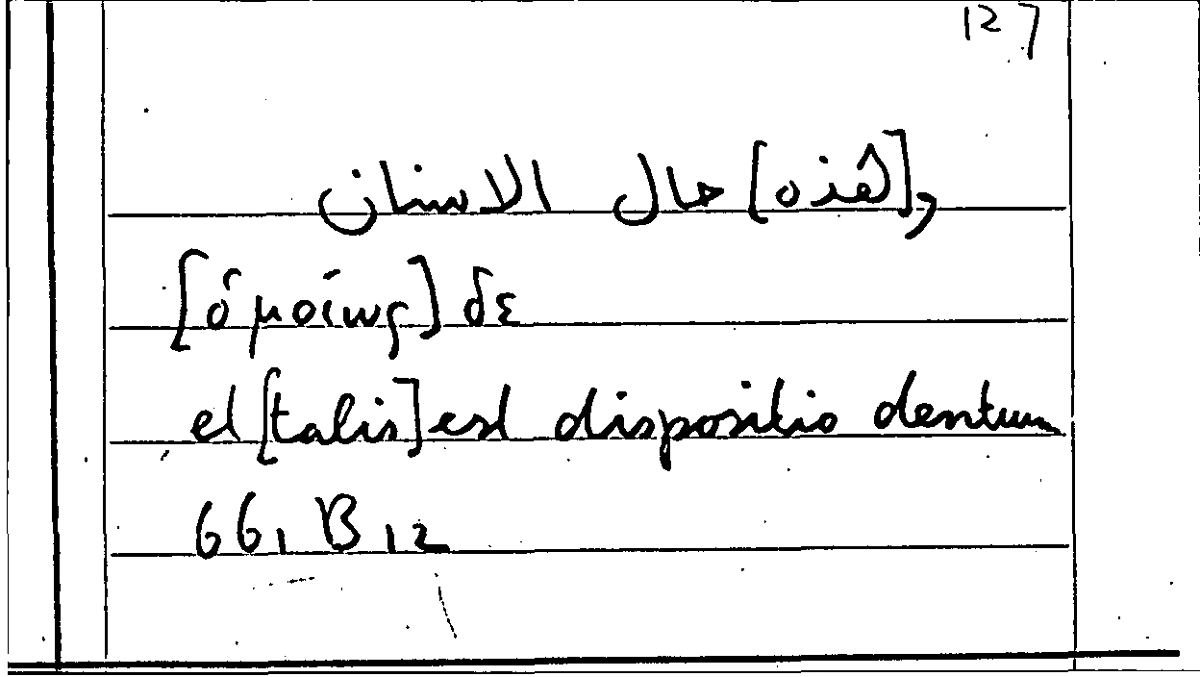 127
و[هذه] حال الاسنان
[ὁμοίως] δε
et [talis] est dispositio dentium
661 B 12